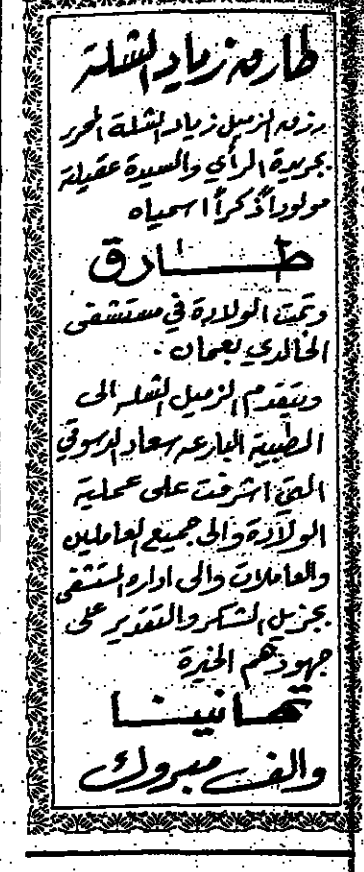 طارق زياد الشلة
رزق الزميل زياد الشلة المحرر
بجريدة الرأي والسيدة عقيلته
مولوداً ذكراً اسمياه
طـــارق
وتمت الولادة في مستشفى
الخالدي بعمان .
ويتقدم الزميل الشله الى
الطبيبة البارعه سعاد
التي اشرفت على عملية
الولادة والى جميع العاملين
والعاملات والى اداره المستشفى
بجزيل الشكر والتقدير على
جهودهم الخيرة
تهـانينــا
والف مبروك